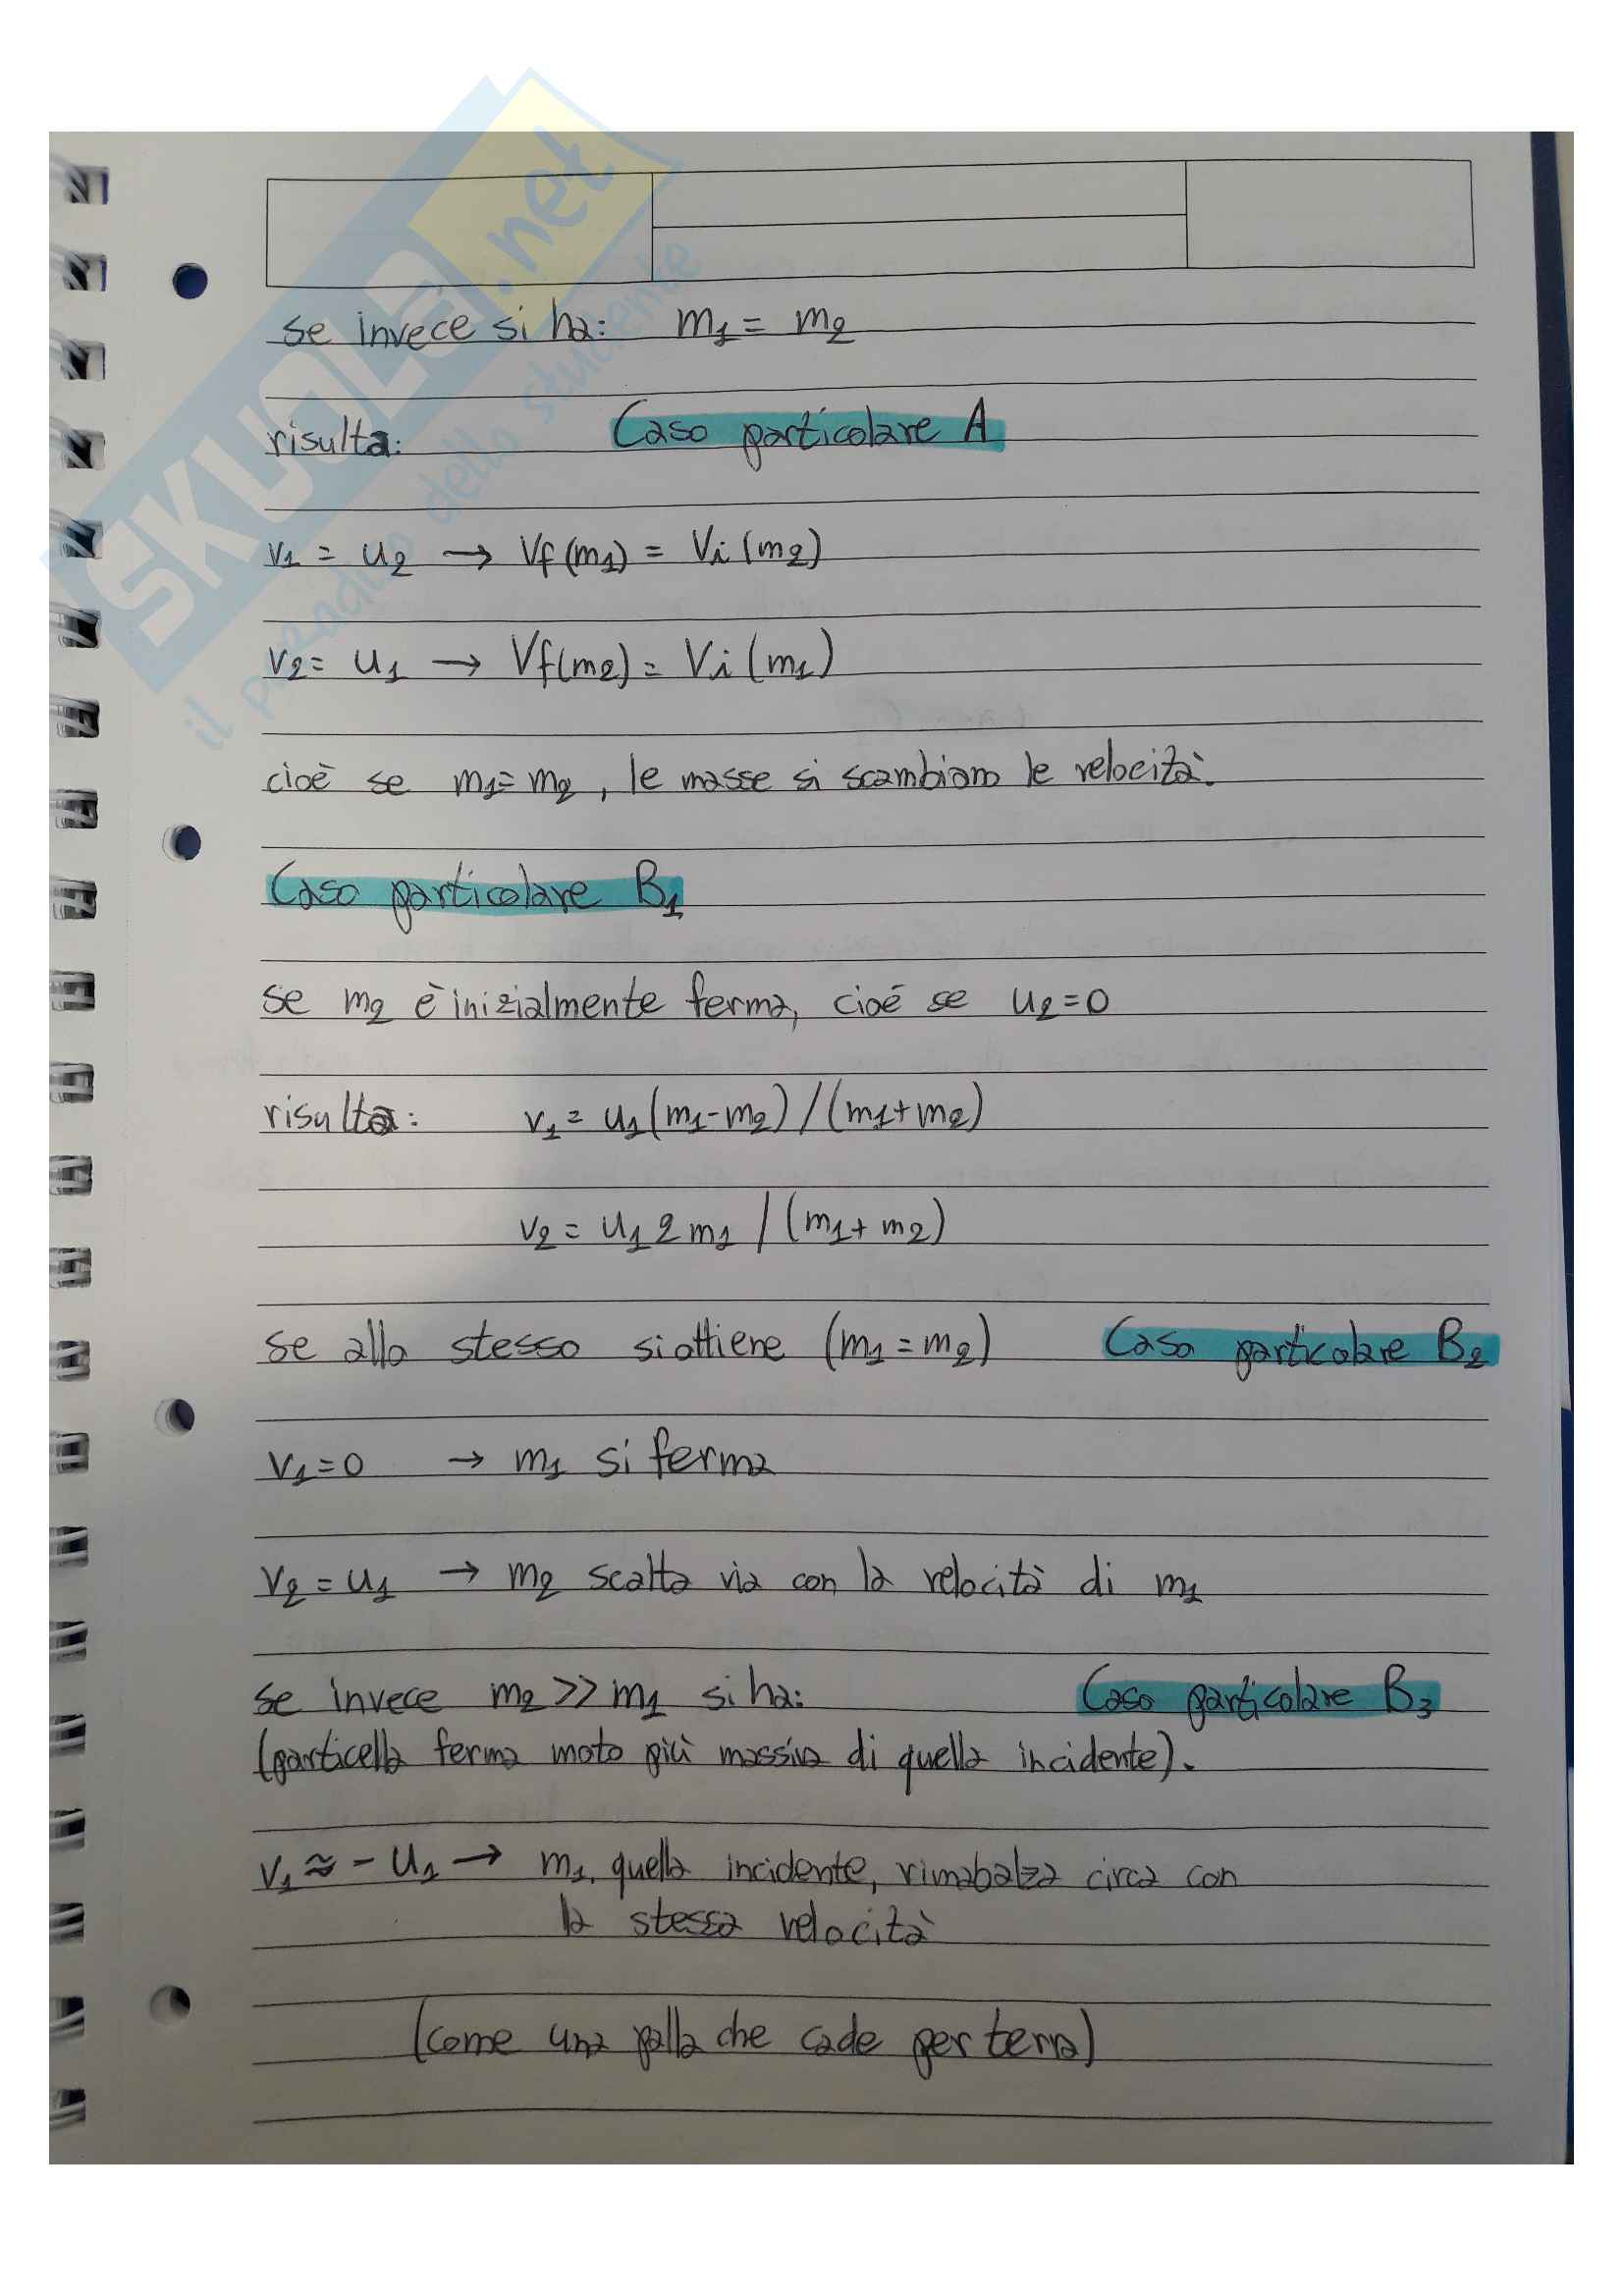 SKUOLA.net
il paradiso dello studente
se invece si ha: m₁ = m₂
risulta: Caso particolare A
v₁ = u₂ → Vf(m₁) = Vi(m₂)
v₂ = u₁ → Vf(m₂) = Vi(m₁)
cioè se m₁ = m₂, le masse si scambiano le velocità.
Caso particolare B₁
se m₂ è inizialmente ferma, cioé se u₂=0
risulta: v₁ = u₁(m₁-m₂)/(m₁+m₂)
v₂ = u₁2m₁/(m₁+m₂)
se allo stesso siottiene (m₁=m₂) Caso particolare B₂
v₁=0 → m₁ si ferma
v₂=u₁ → m₂ scatta via con la velocità di m₁
se invece m₂>>m₁ si ha: Caso particolare B₃
(particella ferma moto più massiva di quella incidente).
v₁≈-u₁ → m₁, quella incidente, rimabalza circa con
la stessa velocità
(come una palla che cade per terra)